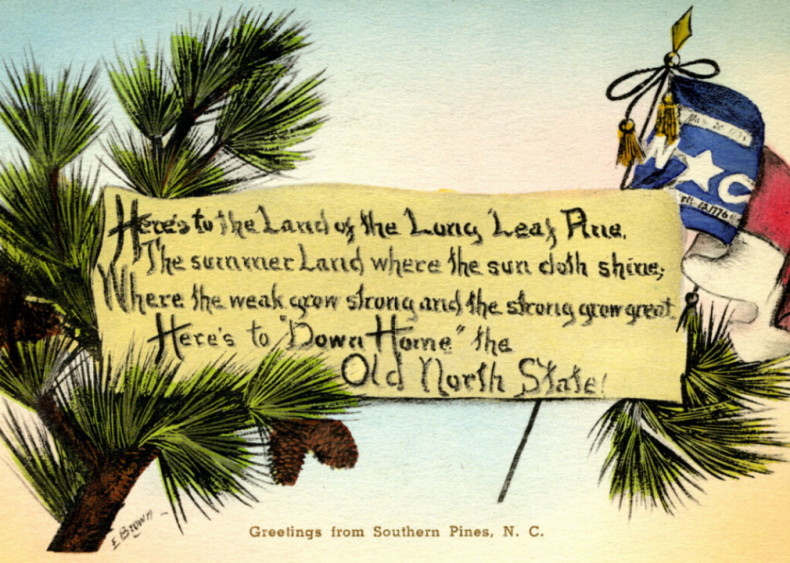 Here's to the Land of the Long Leaf Pine,
The summer Land where the sun doth shine;
Where the weak grow strong and the strong grow great
Here's to "Down Home" the
Old North State!
N ★ C
E Brown
Greetings from Southern Pines, N. C.